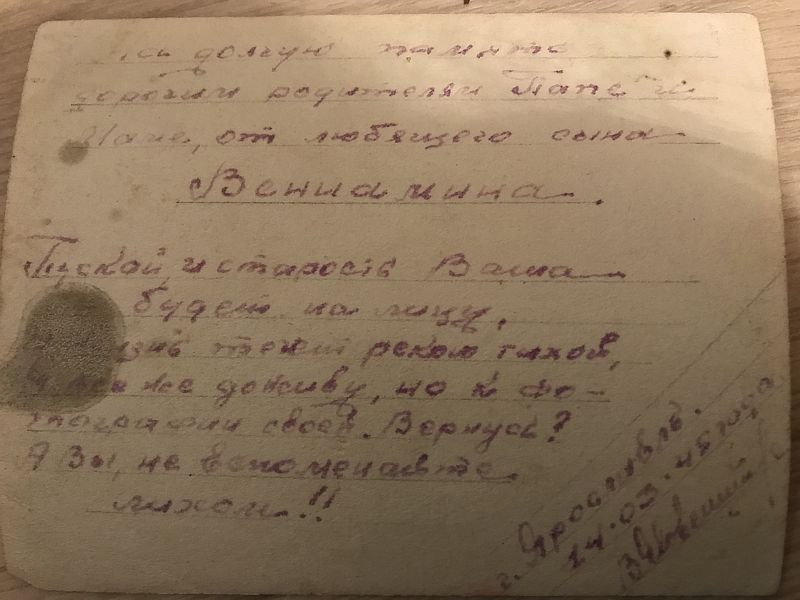 На долгую память
дорогим родителям Папе и
Маме, от любящего сына
Вениамина.
Пускай и старость Ваша
будет на лицу,
течит рекою тихой,
же доживу, но к фо-
тографии своей. Вернусь?
А Вы, не вспоменайте
лихом!!
г. Ярославль.
14.03.45 года